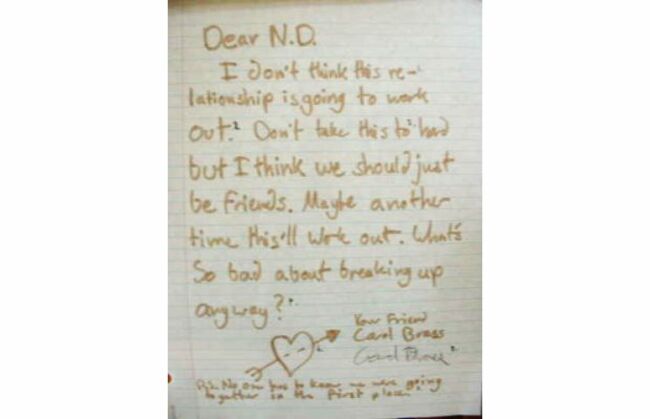 Dear N.D.
I don't think this re-
lationship is going to work
out. Don't take this to hard
but I think we should just
be friends. Maybe another
time this'll work out. What's
so bad about breaking up
anyway?
Your Friend
Carol Brass
P.S. No one has to know we were going
together in the first place.